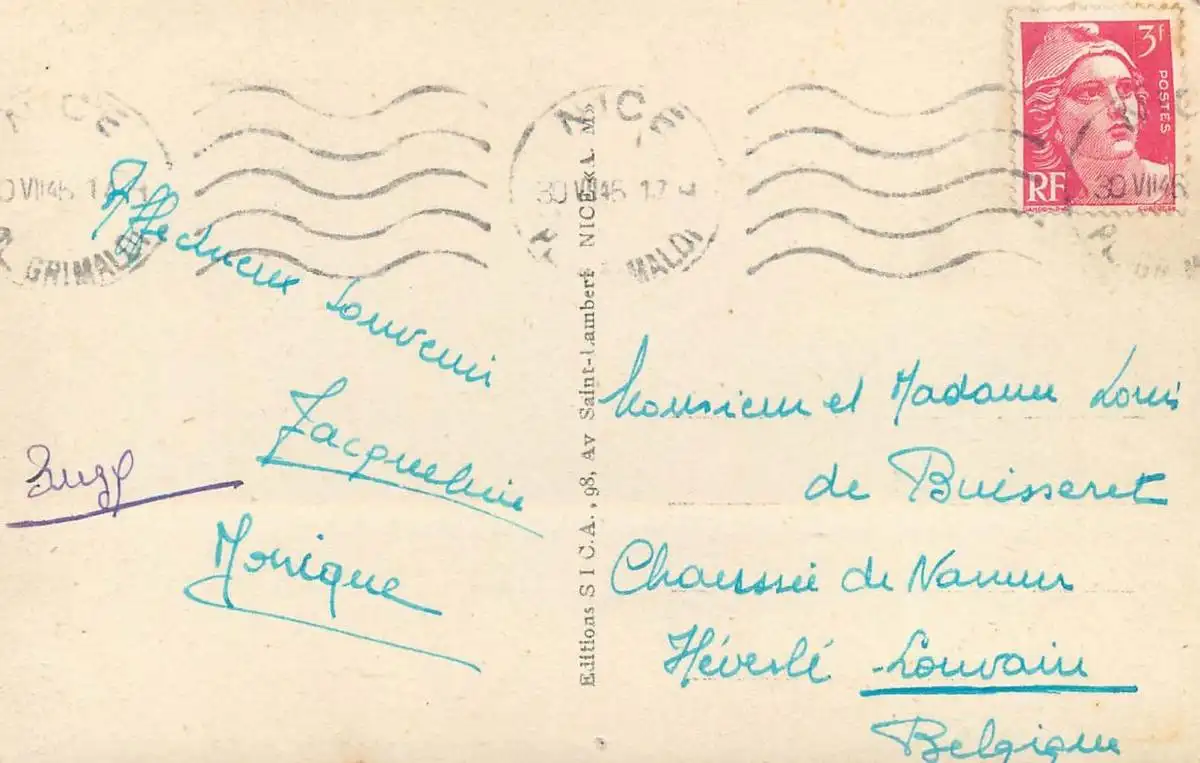 NICE
30 VII 46 17 H
R. GRIMALDI
NICE
30 VII 46 17 H
R. GRIMALDI
3F
POSTES
RF
30 VII 46
Affectueux Souvenir
Jacqueline
Suzy
Monique
Editions S I C A., 98, Av Saint-Lambert NICE
Monsieur et Madame Louis
de Buisseret
Chaussée de Namur
Héverlé - Louvain
Belgique